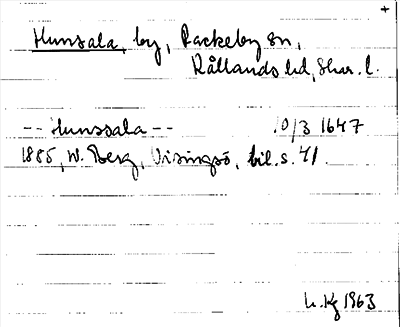 +
Hunsala, by, Rackeby sn,
Kållands hd, Skar. l.
-- Hunssala -- 10/3 1647
1885, W. Berg, Visingsö, bil. s. 41.
L. Kg 1963